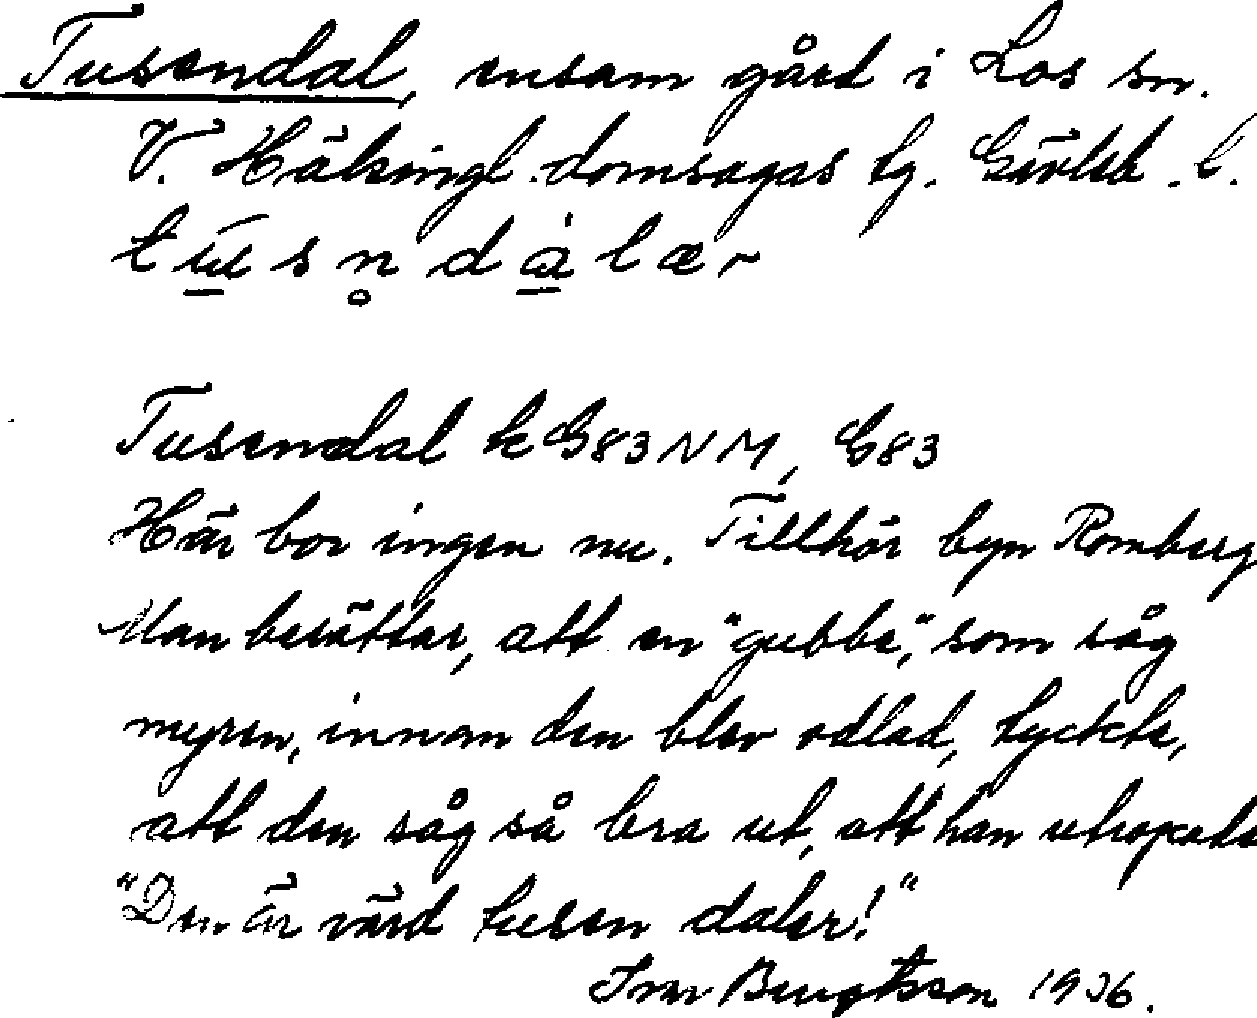 Tusendal, ensam gård i Los sn.
V. Hälsingl. domsagas tg. Gävleb. l.
tūsn̥dàlær
Tusendal k G83NM, G83
Här bor ingen nu. Tillhör byn Romberg
Man berättar, att en "gubbe", som såg
myren, innan den blev odlad, tyckte,
att den såg så bra ut, att han utropade
"Den är värd tusen daler!"
Ivar Bengtsson 1936.